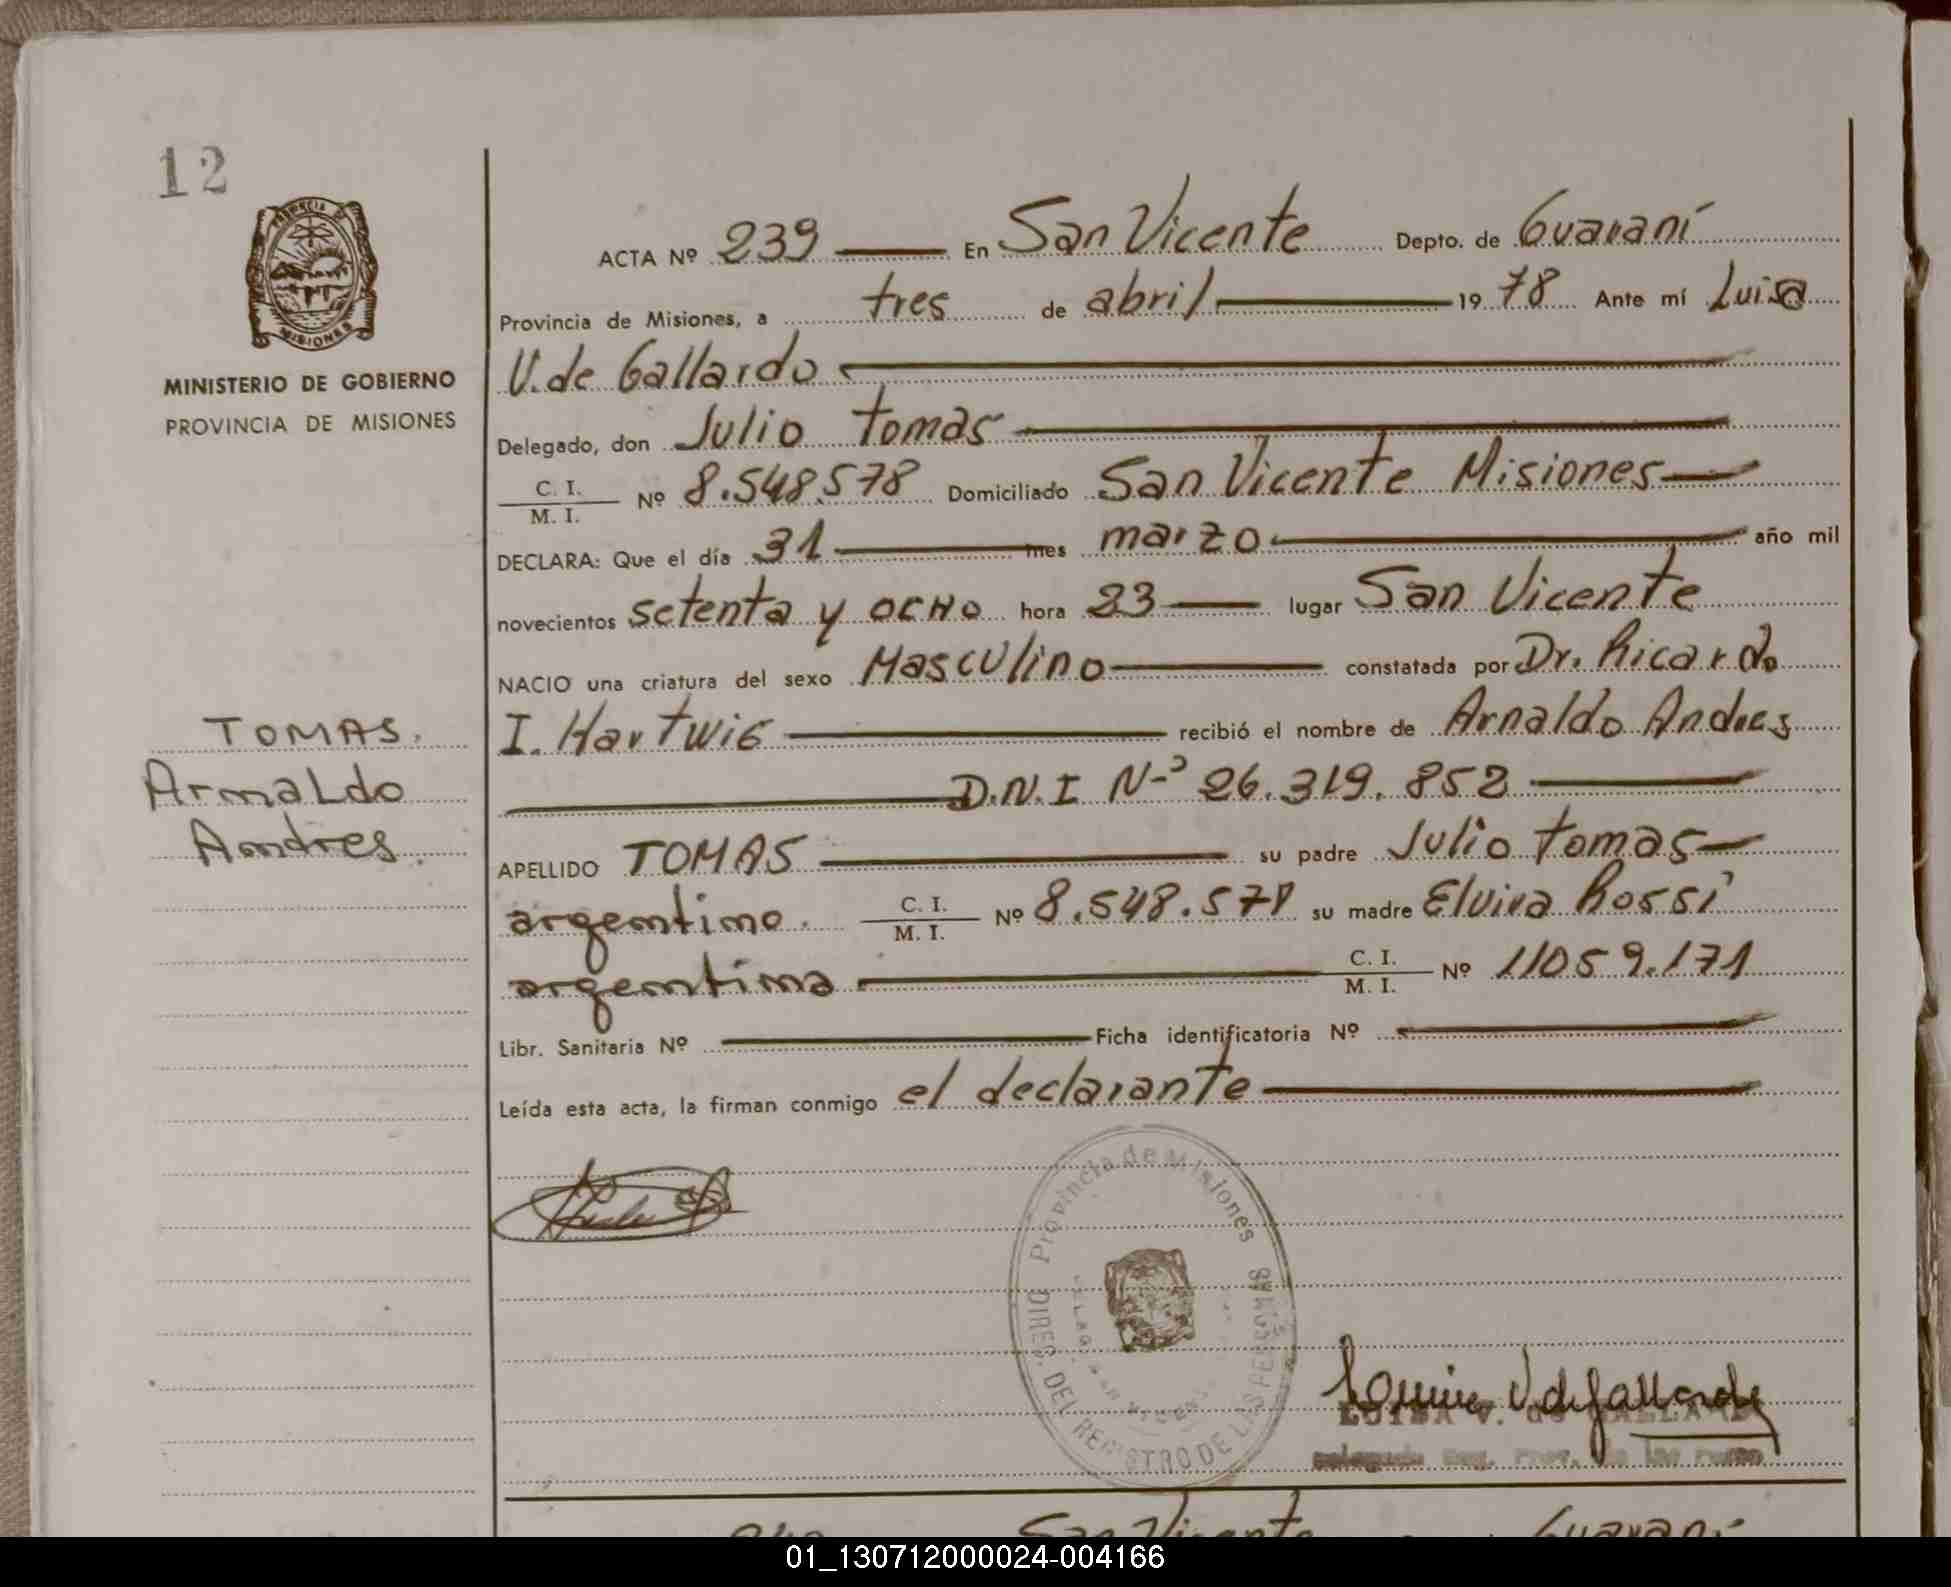 12
PROVINCIA DE
MISIONES
MINISTERIO DE GOBIERNO
PROVINCIA DE MISIONES
TOMAS.
Arnaldo
Andres.
ACTA Nº 239 En San Vicente Depto. de Guaraní
Provincia de Misiones, a tres de abril 19 78 Ante mí Luisa
V. de Gallardo
Delegado, don Julio Tomas
C. I.
M. I. Nº 8.548.578 Domiciliado San Vicente Misiones
DECLARA: Que el día 31 mes marzo año mil
novecientos setenta y ocho hora 23 lugar San Vicente
NACIO una criatura del sexo Masculino constatada por Dr. Ricardo
I. Hartwig recibió el nombre de Arnaldo Andres
D.N.I Nº 26.319.852
APELLIDO TOMAS su padre Julio Tomas
argentino. C. I.
M. I. Nº 8.548.578 su madre Elvira Rossi
argentina C. I.
M. I. Nº 11059.171
Libr. Sanitaria Nº Ficha identificatoria Nº
Leída esta acta, la firman conmigo el declarante
Provincia de Misiones
DIREC. DEL REGISTRO DE LAS PERSONAS
Luisa V de Gallardo
LUISA V. DE GALLARDO
San Vicente Guaraní
01_130712000024-004166